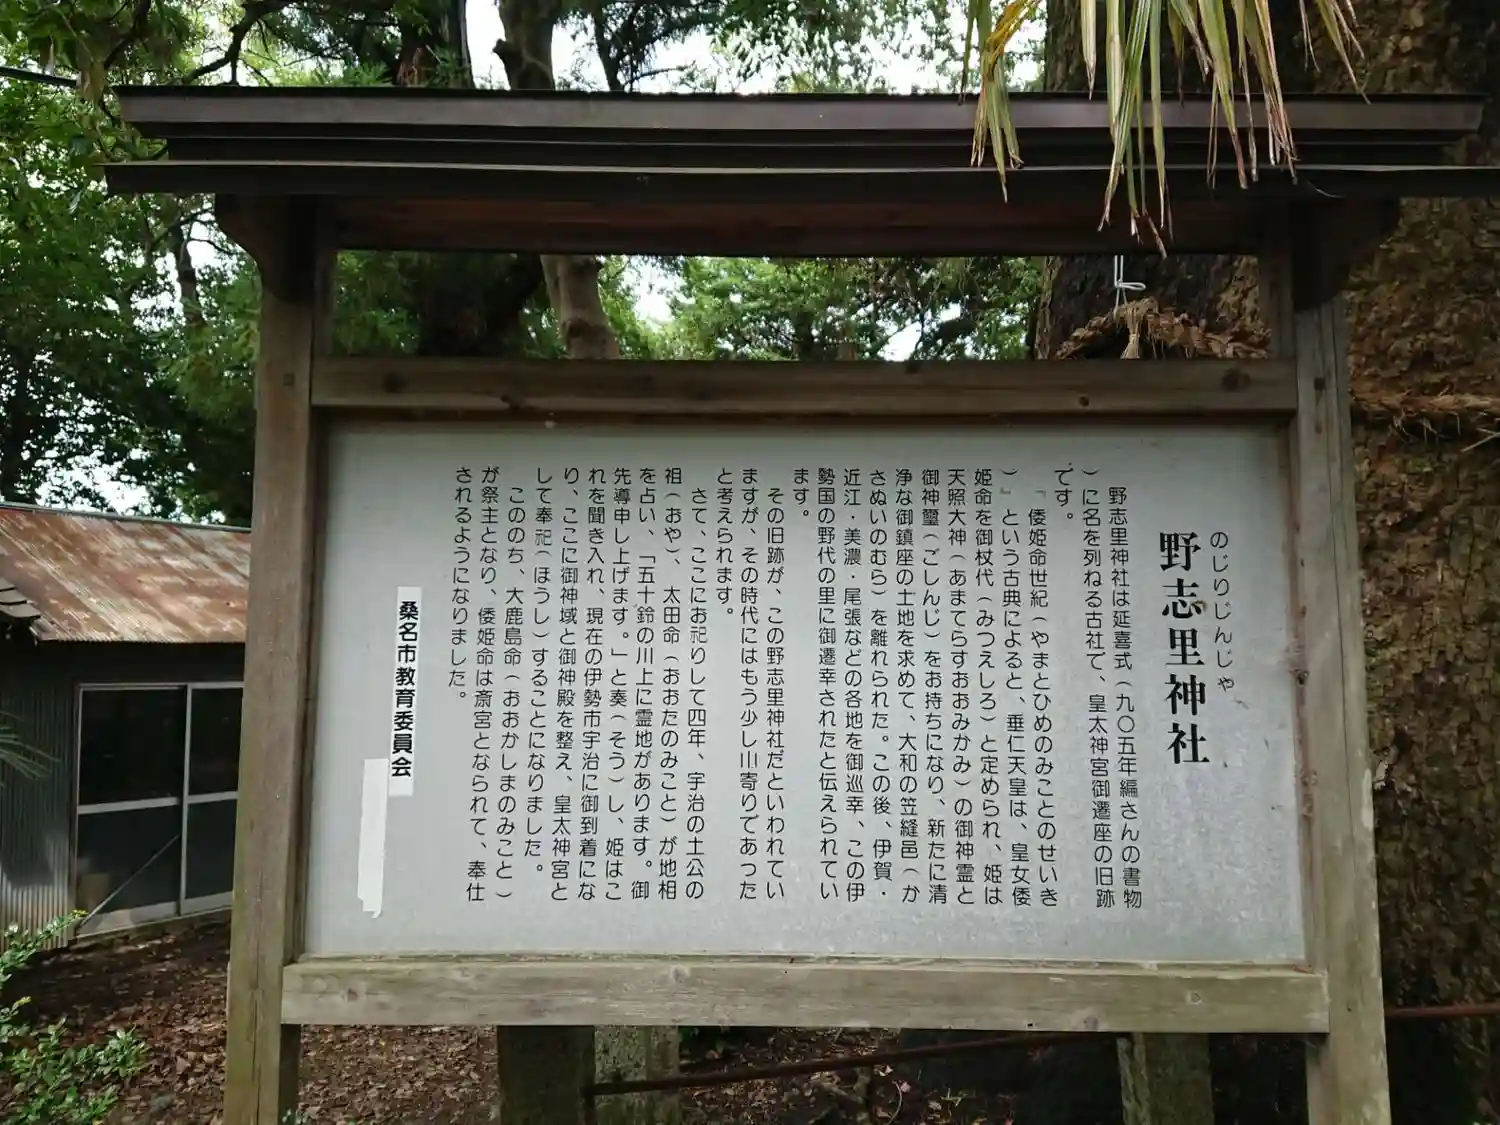 のじりじんじゃ
野志里神社
野志里神社は延喜式（九〇五年編さんの書物
）に名を列ねる古社で、皇太神宮御遷座の旧跡
です。
『倭姫命世紀（やまとひめのみことのせいき
）』という古典によると、垂仁天皇は、皇女倭
姫命を御杖代（みつえしろ）と定められ、姫は
天照大神（あまてらすおおみかみ）の御神霊と
御神璽（ごしんじ）をお持ちになり、新たに清
浄な御鎮座の土地を求めて、大和の笠縫邑（か
さぬいのむら）を離れられた。この後、伊賀・
近江・美濃・尾張などの各地を御巡幸、この伊
勢国の野代の里に御遷幸されたと伝えられてい
ます。
その旧跡が、この野志里神社だといわれてい
ますが、その時代にはもう少し川寄りであった
と考えられます。
さて、ここにお祀りして四年、宇治の土公の
祖（おや）、太田命（おおたのみこと）が地相
を占い、「五十鈴の川上に霊地があります。御
先導申し上げます。」と奏（そう）し、姫はこ
れを聞き入れ、現在の伊勢市宇治に御到着にな
り、ここに御神域と御神殿を整え、皇太神宮と
して奉祀（ほうし）することになりました。
こののち、大鹿島命（おおかしまのみこと）
が祭主となり、倭姫命は斎宮となられて、奉仕
されるようになりました。
桑名市教育委員会